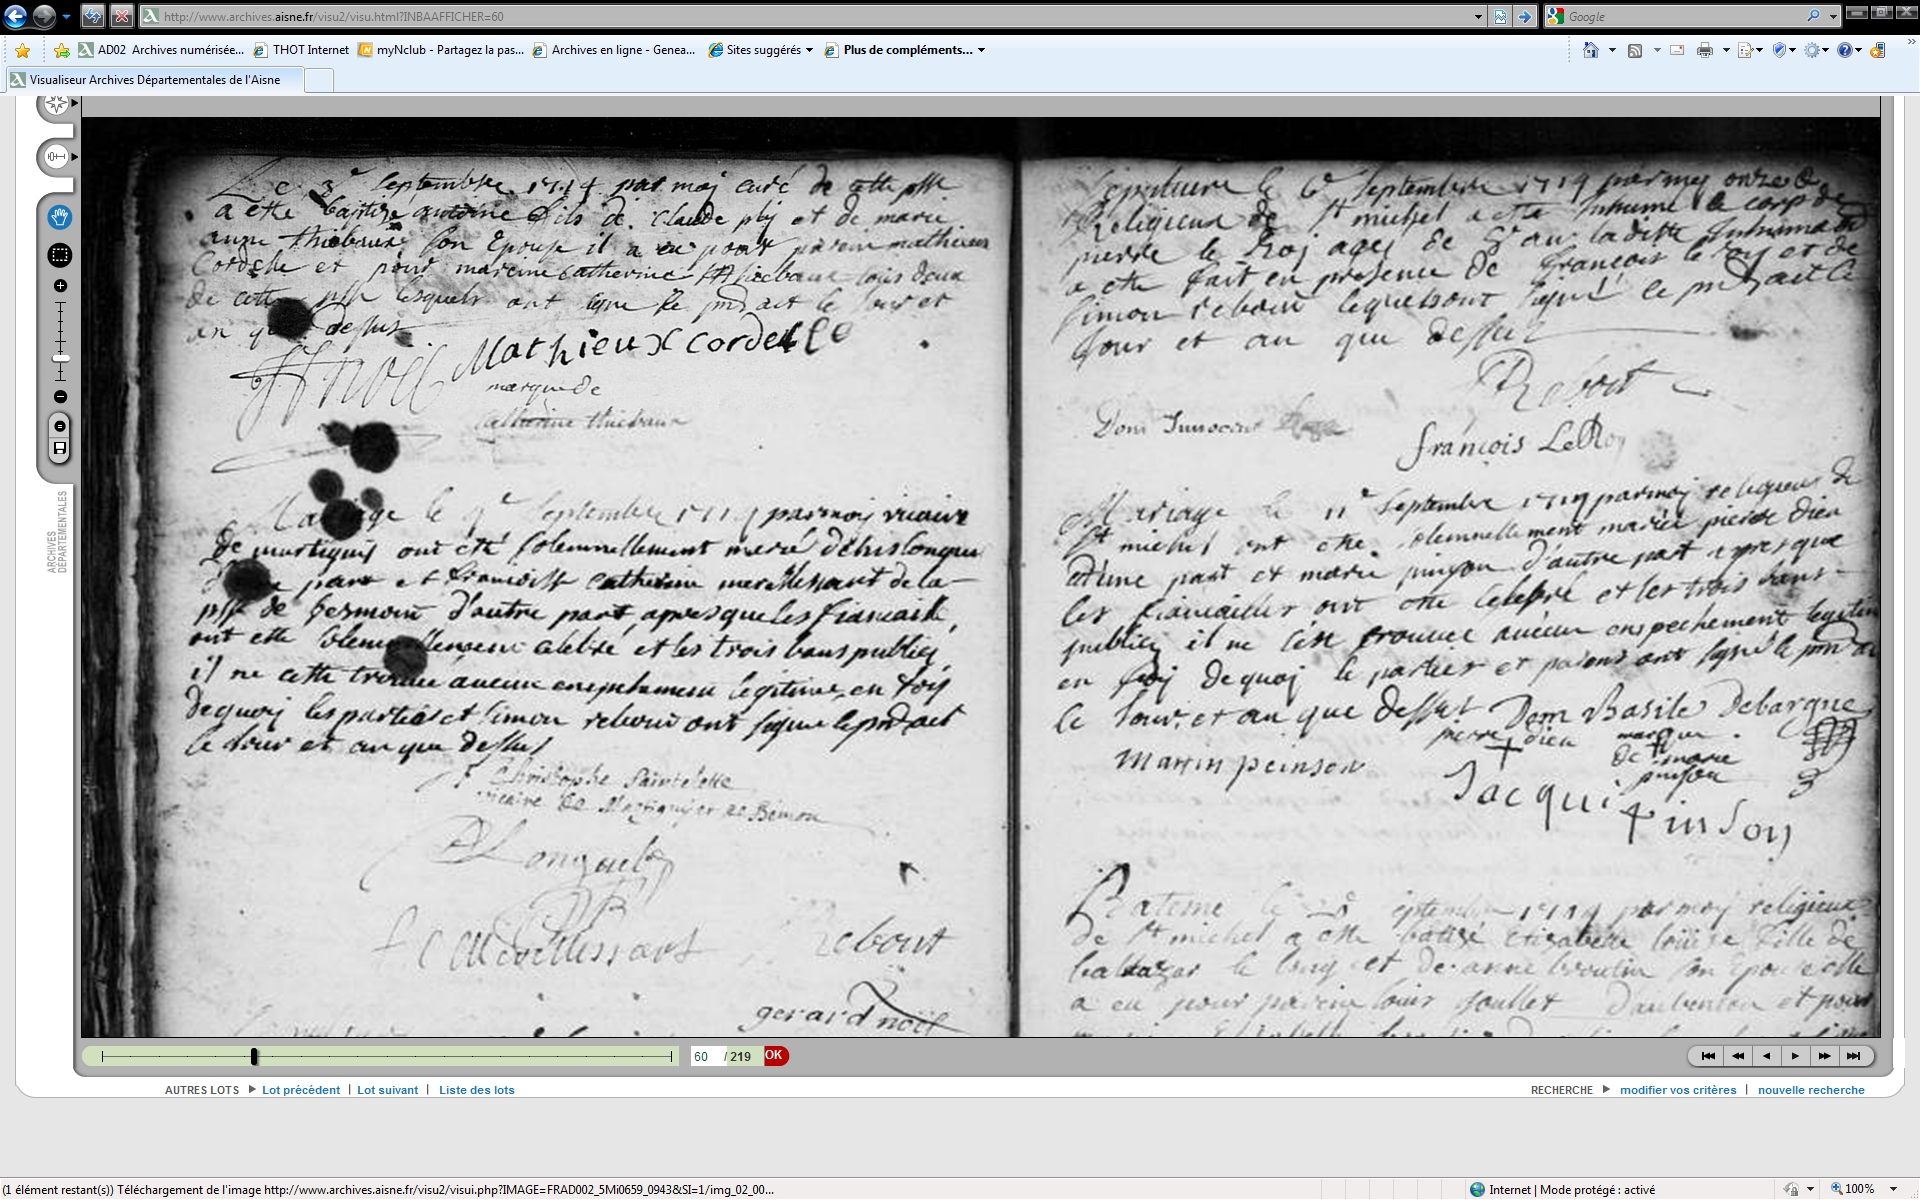 http://www.archives.aisne.fr/visu2/visu.html?INBAAFFICHER=60
Google
AD02 Archives numérisée...
THOT Internet
myNclub - Partagez la pas...
Archives en ligne - Genea...
Sites suggérés
Plus de compléments...
Visualiseur Archives Départementales de l'Aisne
ARCHIVES DÉPARTEMENTALES
Le 3e septembre 1719 par moj curé de cette psse
a ette baptize antoine fils de Claude et de marie
anne thiebaux son Epouse il a eu pour parein mathieux
Cordelle et pour mareine catherine thiebaux tous deux
de cette psse lesquels ont signe le pnt act le jour et
an que dessus
Mathieux cordelle
marque de
Catherine thiebaux
Mariage le 9e septembre 1719 par moy vicaire
de martignij ont été solemnellement marié
part et francoise catherine de la
psse de d'autre part, apres que les fiancaille
ont ette solemnellement celebre et les trois bans publiez
il ne cette trouué aucun empechement legitime, en foy
dequoij les parties et simon rebour ont signe le pnt act
le jour et an que dessus
Christophe Saintelette
vicaire de Martignijer
Rebout
gerard noël
Sepulture le 6e septembre 1719 par moy
Religieux de St michel a ette Inhume le corp de
pierre le Roj agé de an ladite Inhuma
a ette fait en presence de francois le roy et de
simon rebour lequel sont signé le pnt act le
jour et an que dessus
Rebout
Dom Innocent
francois LeRoy
Mariage le 11e septembre 1719 par moj religieux de
St michel ont ette solemnellement marié pierre dieu
d'une part et marie pinson d'autre part apres que
les fiancailles ont ette celebré et les trois bans
publiez il ne s'est trouuee aucun enspechement legitim
en foj dequoj le parties et parens ont signé le pnt ac
le jour et an que dessus Dom Basile Debargne
pierre dieu
marque
de marie
pinson
Martin peinson
Jacqui pinson
Bateme le septembre 1719 par moy religieux
de St michel a ette batizé Elizabette louise fille de
baltazar le long et de anne broutin son Epouse elle
a eu pour parein louis foullet d'aubenton et pour
60 / 219 OK
AUTRES LOTS Lot précédent | Lot suivant | Liste des lots
RECHERCHE modifier vos critères | nouvelle recherche
(1 élément restant(s)) Téléchargement de l'image http://www.archives.aisne.fr/visu2/visui.php?IMAGE=FRAD002_5Mi0659_0943&SI=1/img_02_00...
Internet | Mode protégé : activé
100%